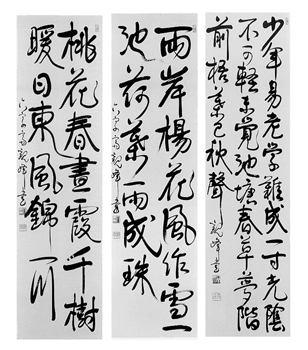 少年易老学難成一寸光陰
不可輕未覺池塘春草夢階
前梧葉已秋聲
観峰書
兩岸楊花風作雪一
池荷葉雨成珠
観峰書
桃花春晝霞千樹
暖日東風錦一川
観峰書